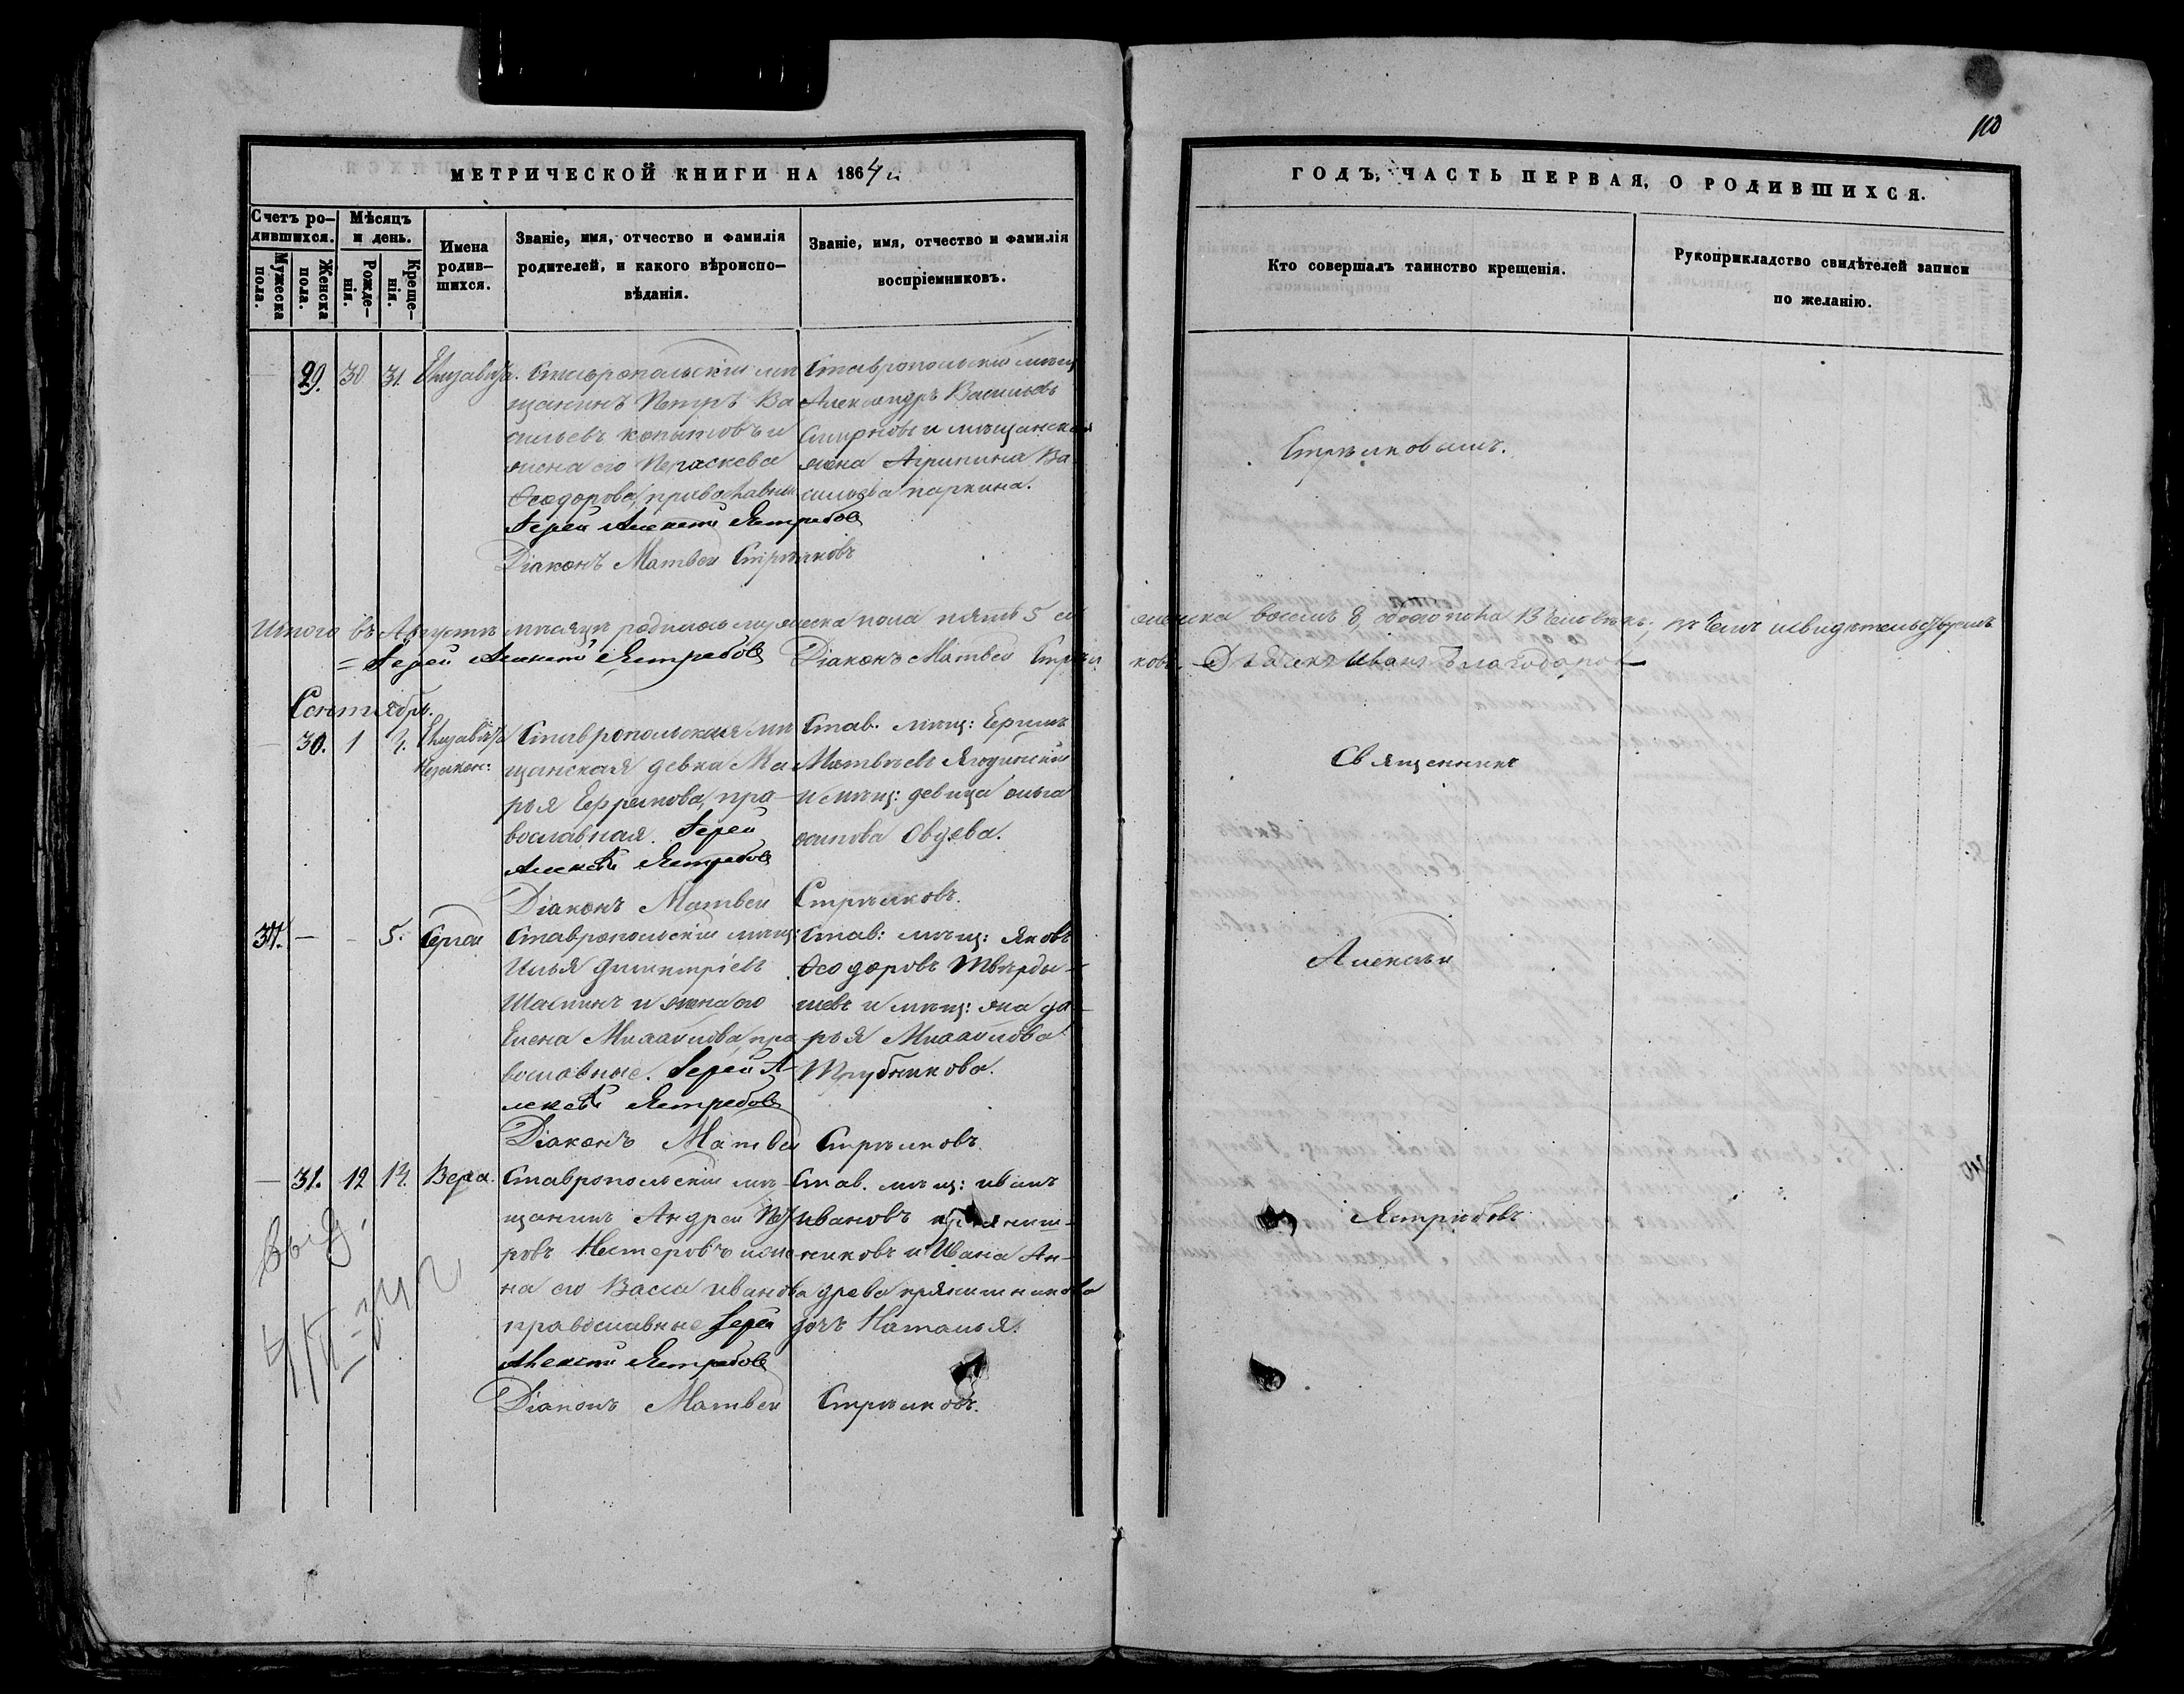 110
МЕТРИЧЕСКОЙ КНИГИ НА 1864 й
ГОДЪ, ЧАСТЬ ПЕРВАЯ, О РОДИВШИХСЯ.
Счетъ ро-
дившихся.
Мужеска
пола.
Женска
пола.
Мѣсяцъ
и день.
Рожде-
нія.
Креще-
нія.
Имена
родив-
шихся.
Званіе, имя, отчество и фамилія
родителей, и какого вѣроиспо-
вѣданія.
Званіе, имя, отчество и фамилія
воспріемниковъ.
Кто совершалъ таинство крещенія.
Рукоприкладство свидѣтелей записи
по желанію.
29. 30 31. Елизавета.
Ставропольскій мѣ
щанинъ Петръ Ва
сильевъ Копытовъ и
жена его Параскева
Ѳеодорова, православные
Іерей Алексѣй Ястребовъ
Діаконъ Матвей Стрѣлковъ
Ставропольскій мѣщ
Александръ Васильевъ
Смирновъ и мѣщанская
жена Агрипина Ва
сильева Паркина.
Стрѣлковымъ.
Итого въ Августѣ мѣсяцѣ родилось мужеска пола пять 5 женска восемь 8, обоего пола 13 человѣкъ; въ чемъ и свидѣтельствуемъ
Іерей Алексѣй Ястребовъ Діаконъ Матвей Стрѣлковъ Дьячекъ Иванъ Благодаровъ
Сентябрь.
30. 1 4. Елизавета
незакон:
Ставропольская мѣ
щанская девка Ма
рья Ефремова, пра-
вославная. Іерей
Алексѣй Ястребовъ
Діаконъ Матвей Стрѣлковъ.
Став. мѣщ:
Матвѣевъ
и мѣщ: девица Ольга
Осипова
Священникъ
— – 5. Сергей
Ставропольскій мѣщ:
Илья Димитріевъ
и жена его
Елена Михайлова, пра
вославные. Іерей А-
лексѣй Ястребовъ
Діаконъ Матвей Стрѣлковъ.
Став: мѣщ: Яковъ
Ѳеодоровъ Твѣрды-
шевъ и мѣщ: жена Да-
рья Михайлова
Трубникова.
Алексѣй
— 31. 12 14. Вера.
Ставропольскій мѣ-
щанинъ Андрей Пет
ровъ Нестеровъ и же
на его Васса Иванова
православные Іерей
Алексѣй Ястребовъ
Діаконъ Матвей Стрѣлковъ.
Став. мѣщ: Иванъ
Ивановъ Прянишн-
иковъ и Ивана Ан-
древа Прянишникова
дочь Наталья.
Ястребовъ
выд.